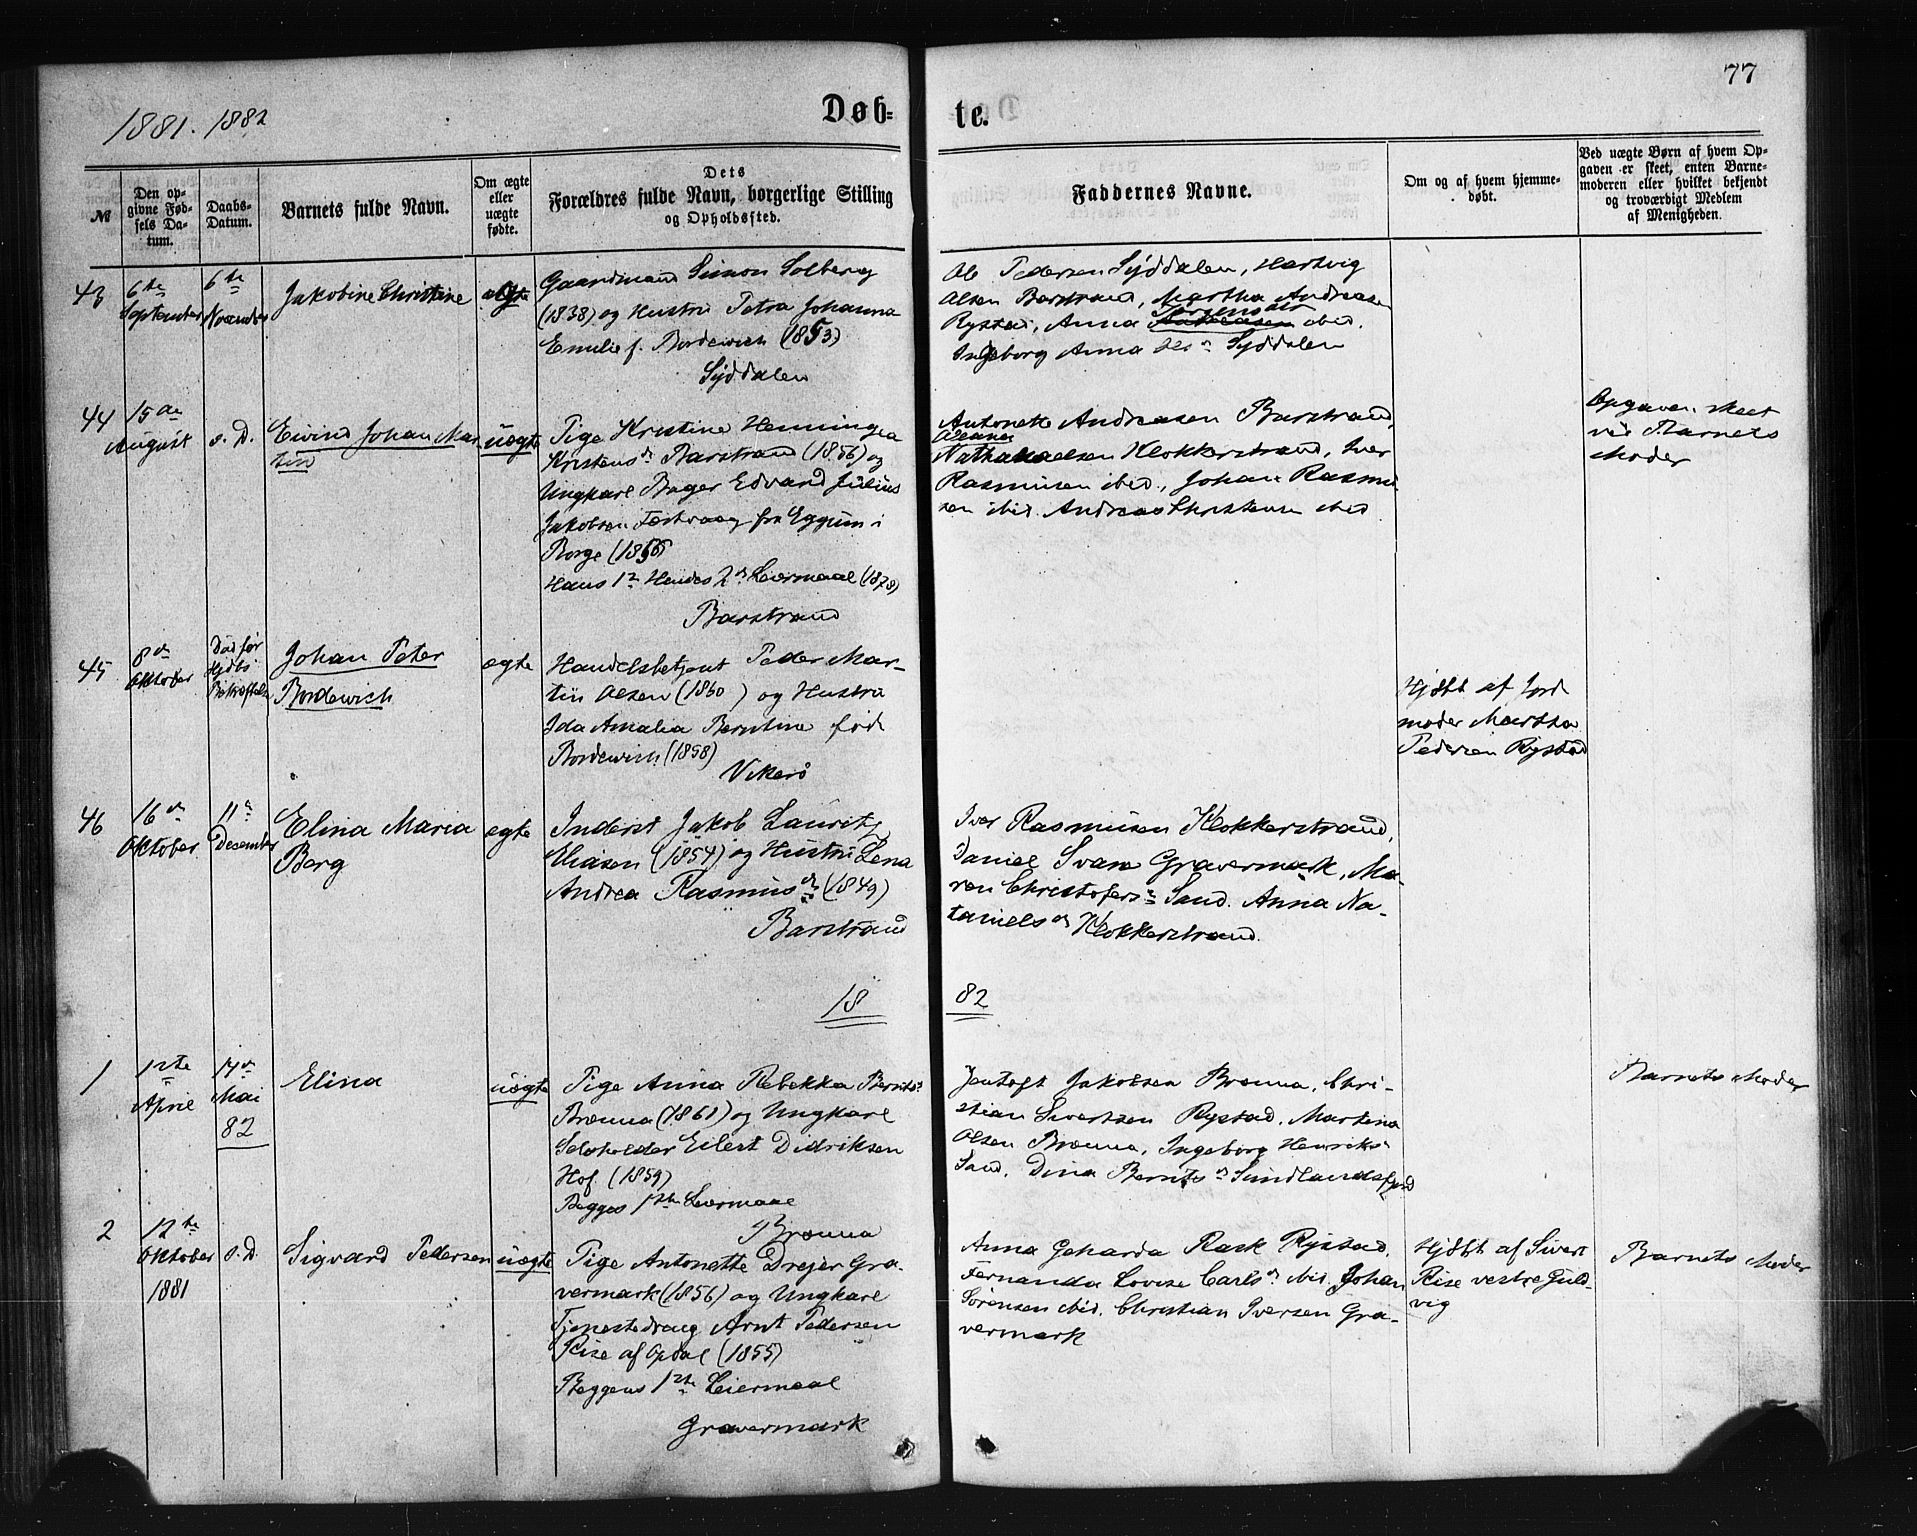 77
1881. 1882
Døb=
te.
№
Den op-
givne Fød-
sels Da-
tum.
Daabs-
Datum.
Barnets fulde Navn.
Om ægte
eller
uægte
fødte.
Dets
Forældres fulde Navn, borgerlige Stilling
og Opholdssted.
Faddernes Navne.
Om og af hvem hjemme-
døbt.
Ved uægte Børn af hvem Op-
gaven er skeet, enten Barne-
moderen eller hvilket bekjendt
og troværdigt Medlem
af Menigheden.
43
6te
September
6te
November
Jakobine Christine
ægte
Gaardmand Simon Solberg
(1838) og Hustru Petra Johanna
Emilie f. Bordewich (1853)
Syddalen
Ole Pedersen Syddalen, Hartvig
Olsen Barstrand, Martha Andreasen
Rystad, Anna ibid.
Ingeborg Anna Syddalen
44
15de
August
s. D.
Eivind Johan Mar
tin
uægte
Pige Kristine Henningea
Kristensdr Barstrand (1856) og
Ungkarl Bager Edvard Julius
Jakobsen Festvaag fra Eggum i
Borge (1856
Hans 1ste Hendes 2det Leermaal (1878)
Barstrand
Antonette Andreasen Barstrand,
Oleana
Nathanaelsen Klokkerstrand, Iver
Rasmusen ibid., Johan Rasmu-
sen ibid. Andreas Christensen ibid
Opgaven skeet
ved Barnets
Moder
45
8de
Oktober
Død før
Hjdbs
Bekræftelse
Johan Peter
Bordewich
ægte
Handelsbetjent Peder Mar-
tin Olsen (1860) og Hustru
Ida Amalia Berntine fød
Bordewich (1858)
Vikerø
Hjdbt af Jord
moder Martha
Pedersen Rystad
46
16de
Oktober
11te
December
Elina Maria
Berg
ægte
Inderst Jakob Lauritz
Eliasen (1854) og Hustru Lena
Andrea Rasmusdr (1849)
Barstrand
Iver Rasmusen Klokkerstrand,
Daniel Svane Gravermark, Ma-
ren Christofersdr Sand. Anna Na-
tanielsdr Klokkerstrand.
18
82
1
12te
April
14de
Mai
82
Elina
uægte
Pige Anna Rebekka Berntsdr
Brenna (1861) og Ungkarl
Selvholder Eilert Didriksen
Hof (1859)
Begges 1ste Leermaal
Brenna
Jentoft Jakobsen Brenna, Chri-
stian Sivertsen Rystad. Martina
Olsen Brenna, Ingeborg Henriks
Sand, Dina Berntsdr Sundlandsfjord
Barnets Moder
2
12te
Oktober
1881
s. D.
Sigvard Pedersen
uægte
Pige Antonette Drejer Gra-
vermark (1856) og Ungkarl
Tjenestedreng Arnt Pedersen
Rise af Opdal (1855)
Begges 1ste Leiermaal
Gravermark
Anna Geharda Rask Rystad,
Fernanda Lovise Carlsdr ibid. Johan
Sørensen ibid. Christian Iversen Gra-
vermark
Hjdbt af Sivert
Rise vestre Guld-
vig
Barnets Moder